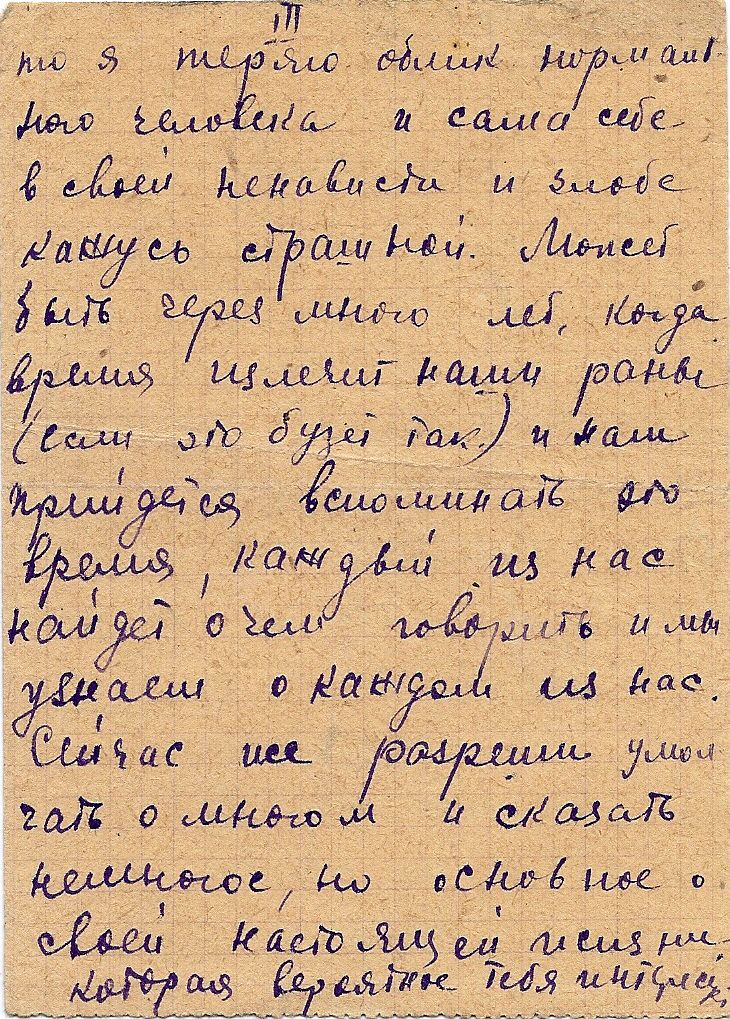 III
то я теряю облик нормаль
ного человека и сама себе
в своей ненависти и злобе
кажусь страшной. Может
быть через много лет, когда
время излечит наши раны
(если это будет так) и нам
прийдется вспоминать это
время, каждый из нас
найдет о чем говорить и мы
узнаем о каждом из нас.
Сейчас же разреши умол
чать о многом и сказать
немногое, но основное о
своей настоящей жизни
которая вероятное тебя интересу